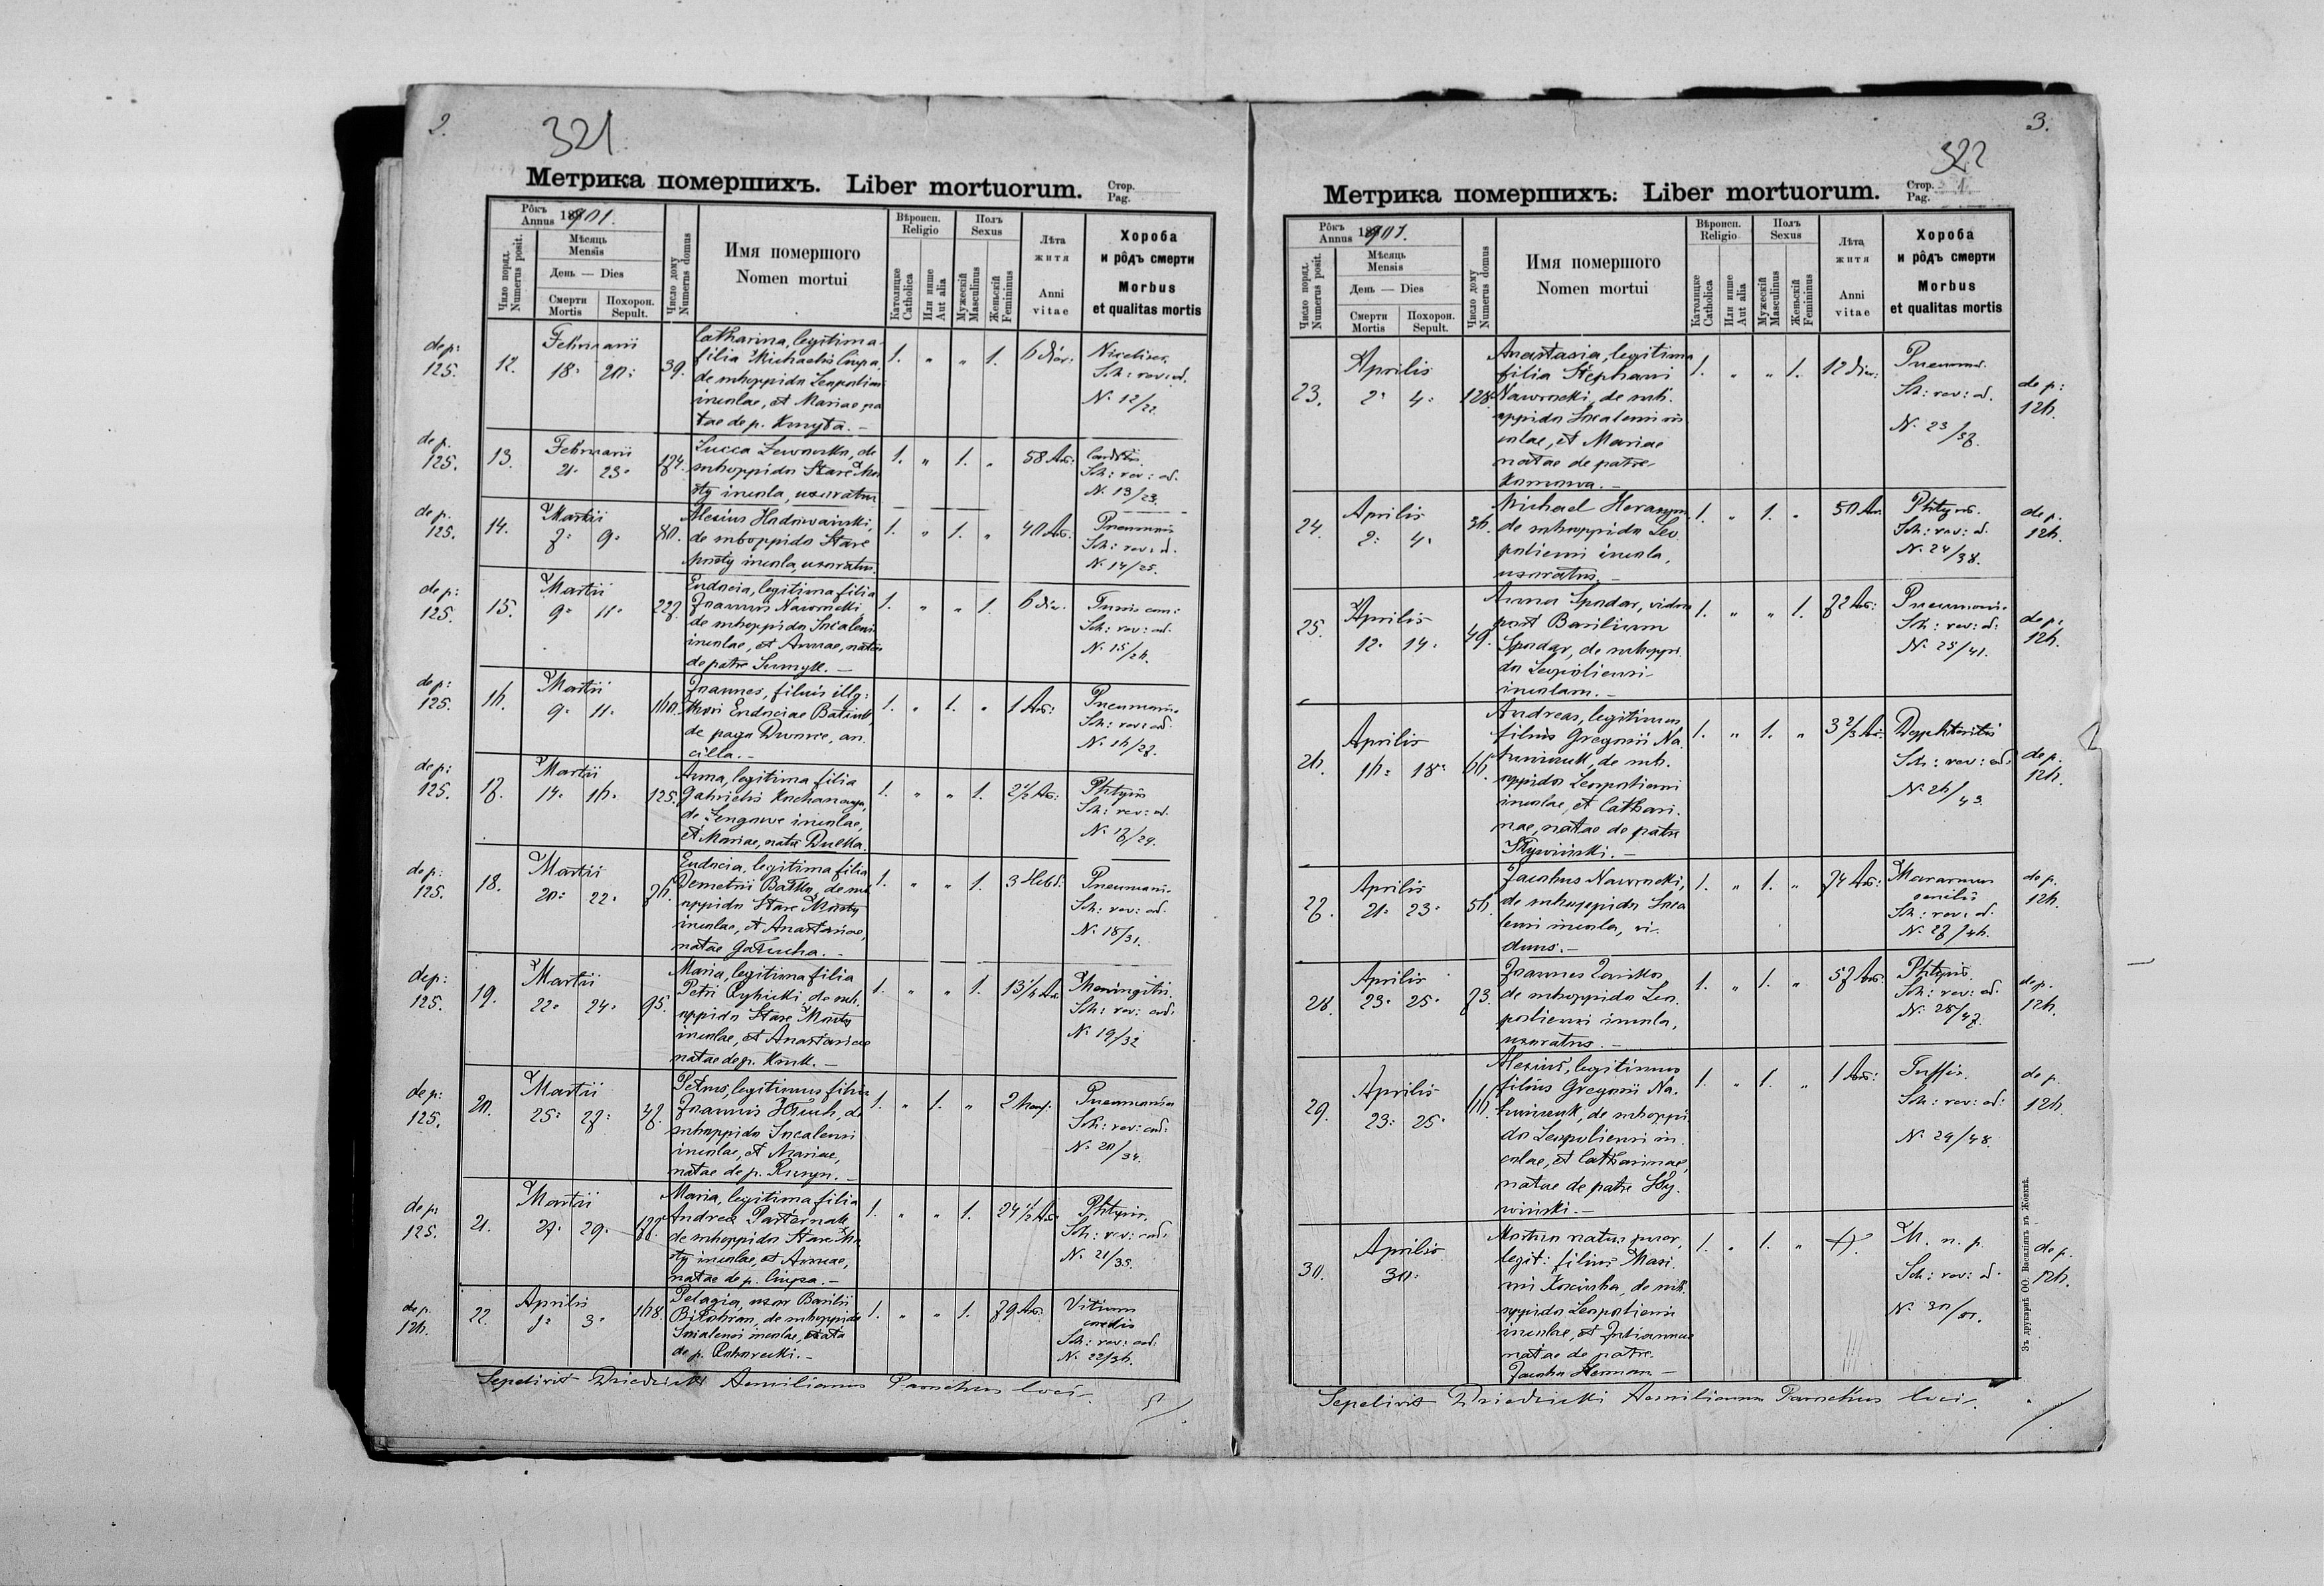 2.
321.
Метрика помершихъ. Liber mortuorum.
Стор.
Pag.
Рôкъ
Annus 18901.
Мѣсяць
Mensis
День — Dies
Смерти
Mortis
Похорон.
Sepult.
Число поряд.
Numerus posit.
Число дому
Numerus domus
Имя помершого
Nomen mortui
Вѣроисп.
Religio
Католицке
Catholica
Или инше
Aut alia
Полъ
Sexus
Мужескій
Masculinus
Женьскій
Femininus
Лѣта
житя
Anni
vitae
Хороба
и рôдъ смерти
Morbus
et qualitas mortis
de p:
125.
12.
Februarii
18. 20.
39.
Catharina, legitima
filia Michaelis Ciupa
de suboppido Leopoliensi
incolae, et Mariae na
tae de p. Kmyta. —
1. " " 1.
6 dier:
Sch: rev: ad.
N. 12/22.
de p.
125.
13.
Februarii
21. 23.
174.
Lucca
de
suboppido Stare Mo
sty incola, uxoratus
1. " 1. "
58 An:
Sch: rev: ad.
N. 13/23.
de p.
125.
14.
Martii
7. 9.
80.
Alexius
de suboppido Stare
Mosty incola, uxoratus.
1. " 1. "
40 An:
Pneumonia
Sch: rev: ad.
N. 14/25.
de p:
125.
15.
Martii
9. 11.
227.
Eudocia, legitima filia
Joannis Nawrocki
de suboppido Socalensi
incolae, et Annae, natae
de patre
1. " " 1.
6 dier.
Sch: rev: ad.
N. 15/26.
de p:
125.
16.
Martii
9. 11.
160.
Joannes, filius illg:
Eudociae
de pago
an
cilla. —
1. " 1. "
1 An:
Pneumonia
Sch: rev: ad.
N. 16/27.
de p:
125.
17.
Martii
14. 16.
125.
Anna, legitima filia
Gabrielis
de
incolae,
et Mariae, natae Dulka.
1. " " 1.
2 1/2 An:
Phtysis
Sch: rev: ad.
N. 17/29.
de p:
125.
18.
Martii
20. 22.
76.
Eudocia, legitima filia
Demetrii
de sub
oppido Stare Mosty
incolae, et Anastasiae,
natae
1. " " 1.
3 Hebd:
Pneumonia
Sch: rev: ad.
N. 18/31.
de p:
125.
19.
Martii
22. 24.
95.
Maria, legitima filia
Petri
de sub
oppido Stare Mosty
incolae, et Anastasiae
natae de p.
1. " " 1.
13 1/2 An.
Meningitis.
Sch: rev: ad.
N. 19/32
de p:
125.
20.
Martii
25. 27.
37.
Petrus, legitimus filius
Joannis
de
suboppido Socalensi
incolae, et Mariae,
natae de p.
1. " 1. "
2 Mens:
Pneumonia
Sch: rev: ad.
N. 20/34.
de p:
125.
21.
Martii
27. 29.
Maria, legitima filia
Andreae Pasternak,
de suboppido Stare Mo
sty incolae, et Annae,
natae de p. Ciupa. —
1. " " 1.
24 1/2 An.
Phtysis.
Sch: rev: ad.
N. 21/35.
de p.
126.
22.
Aprilis
1. 3.
168.
Pelagia, uxor Basilii
de suboppido
Socalensi incolae, nata
de p.
1. " " 1.
79 An:
Vitium
cordis
Sch: rev: ad.
N. 22/36.
Sepelivit Dziedzicki Aemilianus Parochus loci.
3.
322
Метрика помершихъ: Liber mortuorum.
Стор.
Pag.
Рôкъ
Annus 18901.
Мѣсяць
Mensis
День — Dies
Смерти
Mortis
Похорон.
Sepult.
Число поряд.
Numerus posit.
Число дому
Numerus domus
Имя помершого
Nomen mortui
Вѣроисп.
Religio
Католицке
Catholica
Или инше
Aut alia
Полъ
Sexus
Мужескій
Masculinus
Женьскій
Femininus
Лѣта
житя
Anni
vitae
Хороба
и рôдъ смерти
Morbus
et qualitas mortis
23.
Aprilis
2. 4.
128.
Anastasia, legitima
filia Stephani
Nawrocki, de sub.
oppido Socalensi in
colae, et Mariae
natae de patre
1. " " 1.
12 dier:
Pneumon.
Sch: rev: ad.
N. 23/37.
de p:
126.
24.
Aprilis
2. 4.
36.
Michael Harasym
de suboppido Leo
poliensi incola,
uxoratus. —
1. " 1. "
50 An.
Phtysis.
Sch: rev: ad.
N. 24/38.
de p.
126.
25.
Aprilis
12. 14.
49.
Anna Spodar, vidua
post Basilium
Spodar, de suboppi
do Leopoliensi
incolam. —
1. " " 1.
72 An:
Pneumonia
Sch: rev: ad:
N. 25/41.
de p.
126.
26.
Aprilis
16. 18.
66.
Andreas, legitimus
filius Gregorii
de sub.
oppido Leopoliensi
incolae, et Cathari.
nae, natae de patre
1. " 1. "
3 2/3 An:
Dyphteritis
Sch: rev: ad.
N. 26/43.
de p.
126.
27.
Aprilis
21. 23.
56.
Jacobus Nawrocki,
de suboppido Soca
lensi incola, vi.
duus. —
1. " 1. "
74 An:
Marasmus
senilis
Sch: rev: ad.
N. 27/46.
de p.
126.
28.
Aprilis
23. 25.
73.
Joannes
de suboppido Leo.
poliensi incola,
uxoratus. —
1. " 1. "
57 An:
Phtysis.
Sch: rev: ad.
N. 28/47.
de p.
126.
29.
Aprilis
23. 25.
Alexius, legitimus
filius Gregorii
de suboppi
do Leopoliensi in
colae, et Catharinae,
natae de patre
1. " 1. "
1 An:
Tussis.
Sch: rev: ad:
N. 29/48.
de p.
126.
30.
Aprilis
30.
Mortuo natus puer,
legit: filius Maxi.
mi
de sub.
oppido Leopoliensi
incolae, et Juliannae
natae de patre
1. " 1. "
M. n. p.
Sch: rev: ad.
N. 30/51.
de p.
126.
Sepelivit Dziedzicki Aemilianus Parochus loci.
Зъ друкарнѣ ОО. Василіянъ въ Жовквѣ.